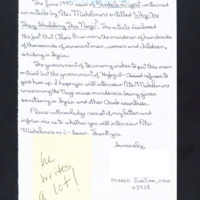 The June 1990 issue of Reader's Digest contained
an article by Peter Michelmore entitled "Why Are
They Shielding This Nazi?". The article discussed
the fact that Alois Brunner, the murderer of hundreds
of thousands of innocent men, women and children,
is hiding in Syria.
The government of Germany wants to put this man on
trial but the government of Hafez al-Assad refuses to
give him up. I hope you will interview Peter Michelmore
concerning the Nazi mass murderers being given
sanctuary in Syria and other Arab countries.
Please acknowledge receipt of my letter and
inform me as to whether you will interview Peter
Michelmore on C-Span. Thank you.
Sincerely,
he
writes
a lot!